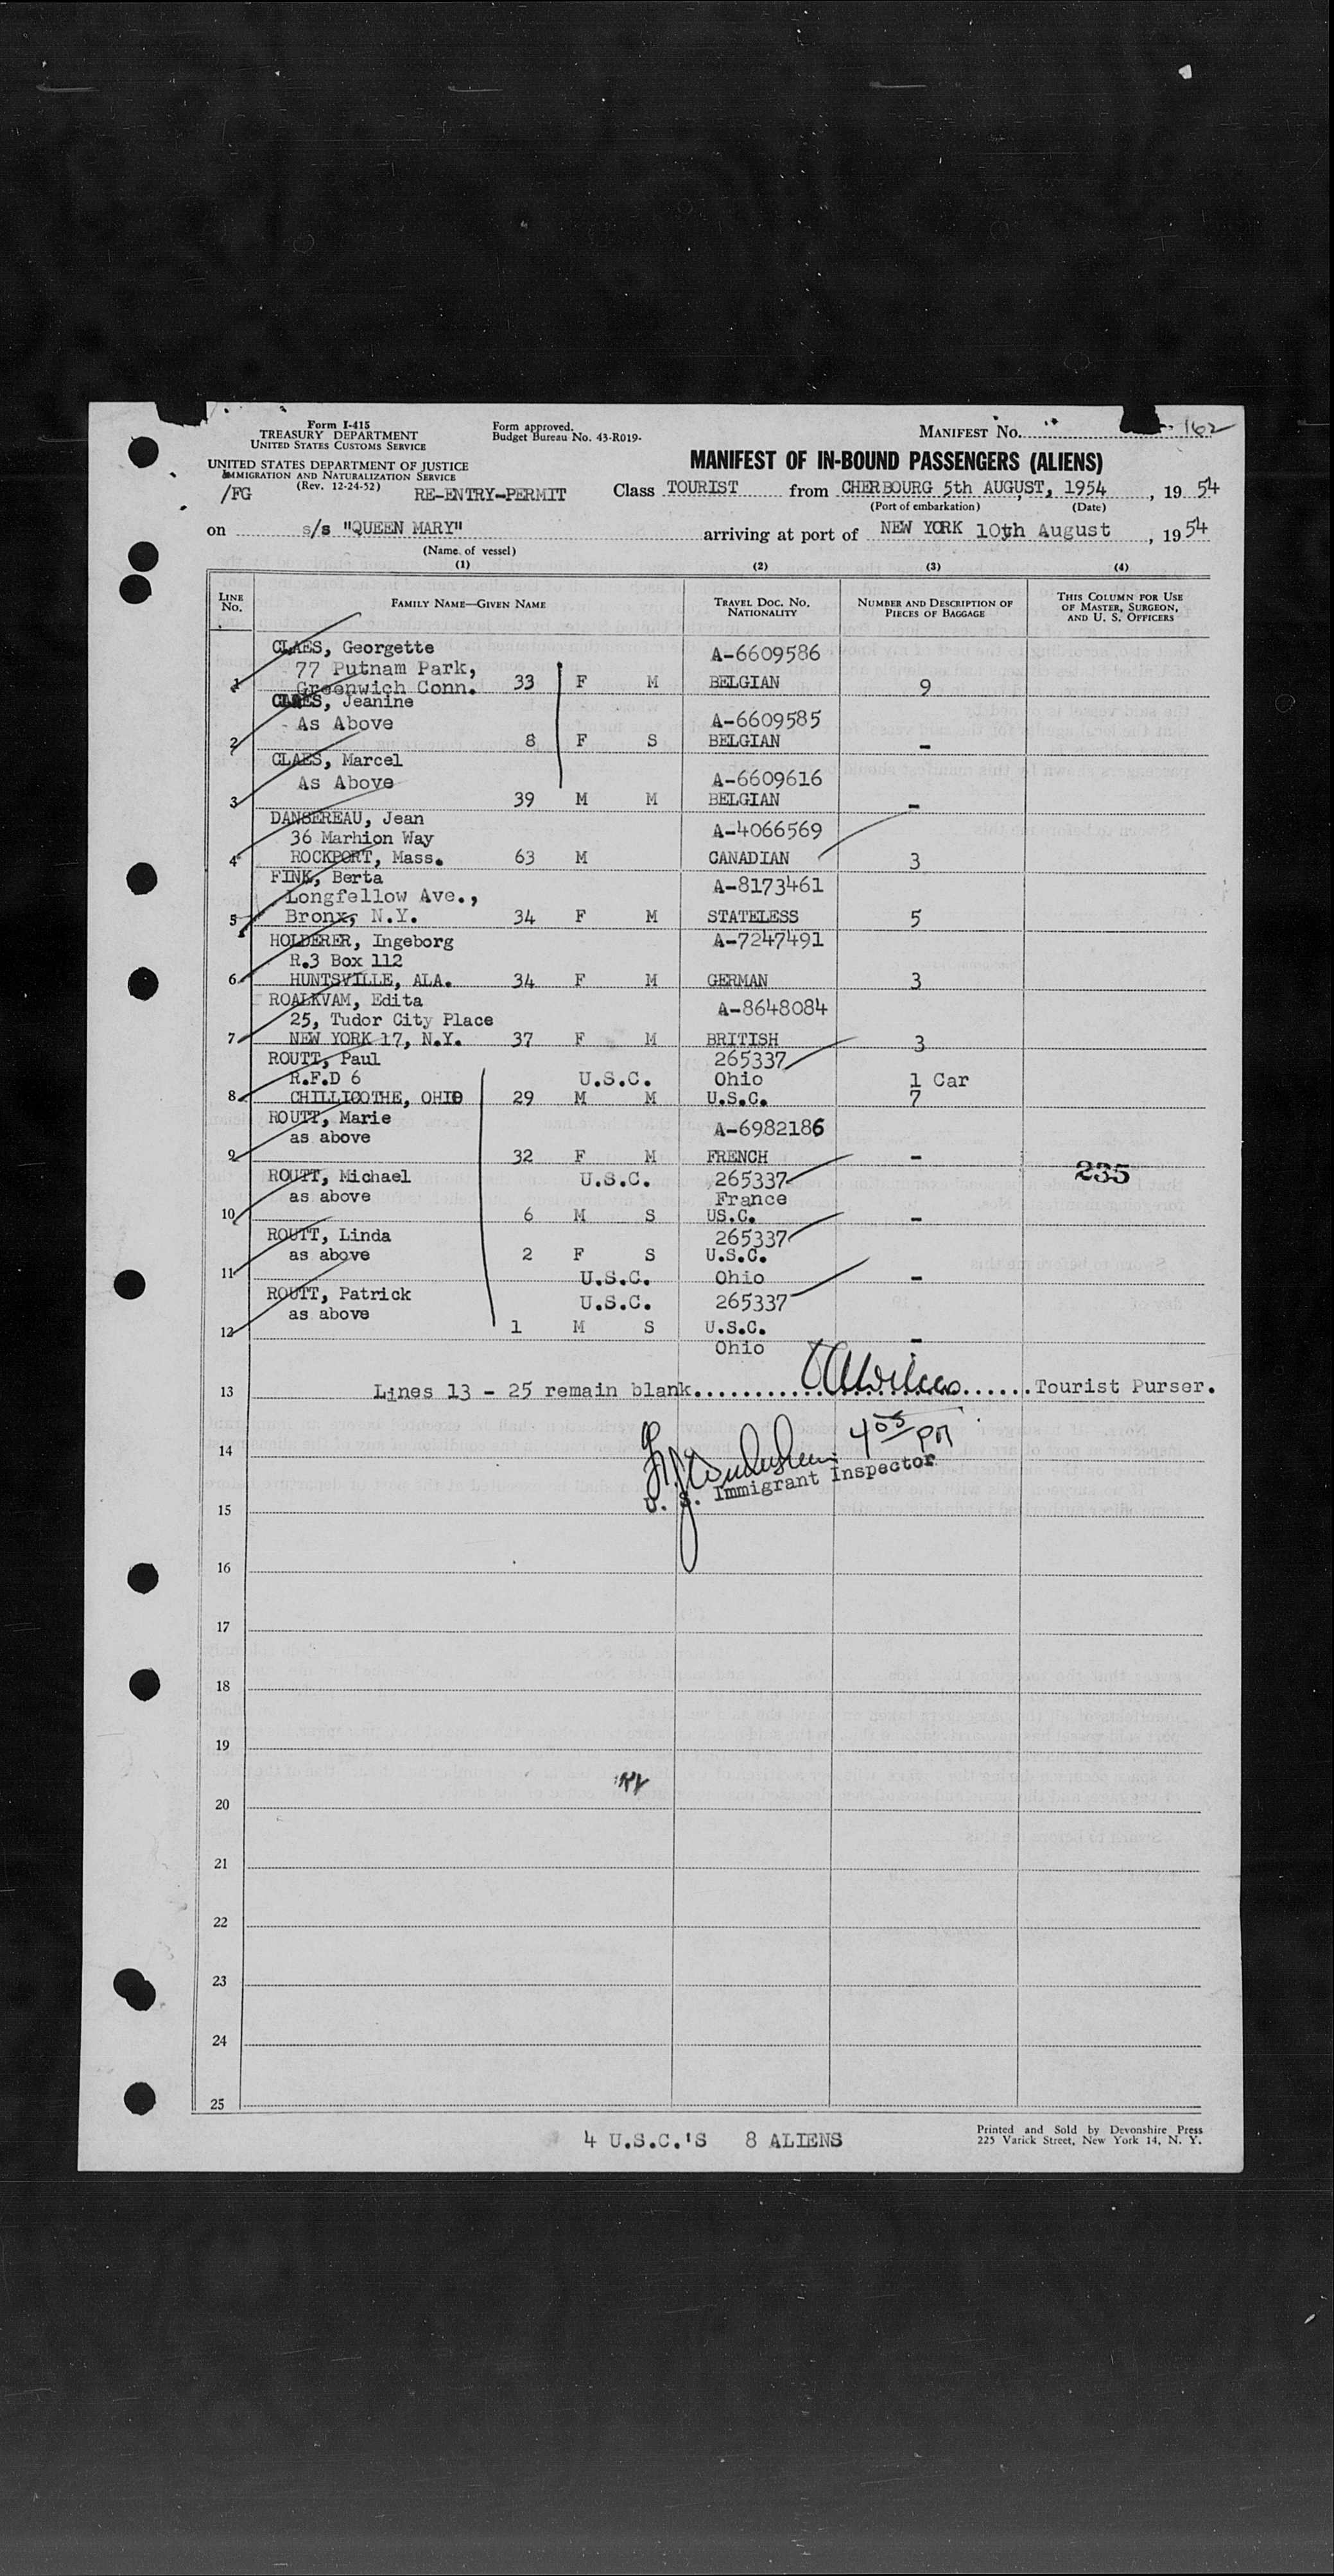 Form I-415
TREASURY DEPARTMENT
UNITED STATES CUSTOMS SERVICE
Form approved.
Budget Bureau No. 43-R019-
MANIFEST No. 162
UNITED STATES DEPARTMENT OF JUSTICE
IMMIGRATION AND NATURALIZATION SERVICE
(Rev. 12-24-52)
MANIFEST OF IN-BOUND PASSENGERS (ALIENS)
/FG RE-ENTRY-PERMIT Class TOURIST from CHERBOURG 5th AUGUST, 1954, 19 54
(Port of embarkation) (Date)
on s/s "QUEEN MARY" arriving at port of NEW YORK 10th August, 19 54
(Name of vessel)
(1) (2) (3) (4)
LINE No. FAMILY NAME—GIVEN NAME TRAVEL DOC. NO. NATIONALITY NUMBER AND DESCRIPTION OF PIECES OF BAGGAGE THIS COLUMN FOR USE OF MASTER, SURGEON, AND U. S. OFFICERS
CLAES, Georgette A-6609586
77 Putnam Park,
1 Greenwich Conn. 33 F M BELGIAN 9
CLAES, Jeanine
As Above A-6609585
2 8 F S BELGIAN -
CLAES, Marcel
As Above A-6609616
3 39 M M BELGIAN -
DANSEREAU, Jean A-4066569
36 Marhion Way
4 ROCKPORT, Mass. 63 M CANADIAN 3
FINK, Berta A-8173461
Longfellow Ave.,
5 Bronx, N.Y. 34 F M STATELESS 5
HOLDERER, Ingeborg A-7247491
R.3 Box 112
6 HUNTSVILLE, ALA. 34 F M GERMAN 3
ROALKVAM, Edita A-8648084
25, Tudor City Place
7 NEW YORK 17, N.Y. 37 F M BRITISH 3
ROUTT, Paul 265337
R.F.D 6 U.S.C. Ohio 1 Car
8 CHILLICOTHE, OHIO 29 M M U.S.C. 7
ROUTT, Marie A-6982186
as above
9 32 F M FRENCH -
ROUTT, Michael U.S.C. 265337 235
as above France
10 6 M S US.C. -
ROUTT, Linda 265337
as above 2 F S U.S.C.
11 U.S.C. Ohio -
ROUTT, Patrick U.S.C. 265337
as above
12 1 M S U.S.C. -
Ohio
13 Lines 13 - 25 remain blank Tourist Purser.
4 05 PM
14
U. S. Immigrant Inspector
15
16
17
18
19
20
21
22
23
24
25
4 U.S.C.'S 8 ALIENS
Printed and Sold by Devonshire Press
225 Varick Street, New York 14, N. Y.